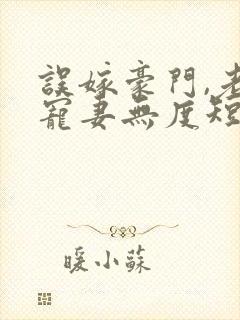 誤嫁豪門,老
寵妻無度短
暖小蘇